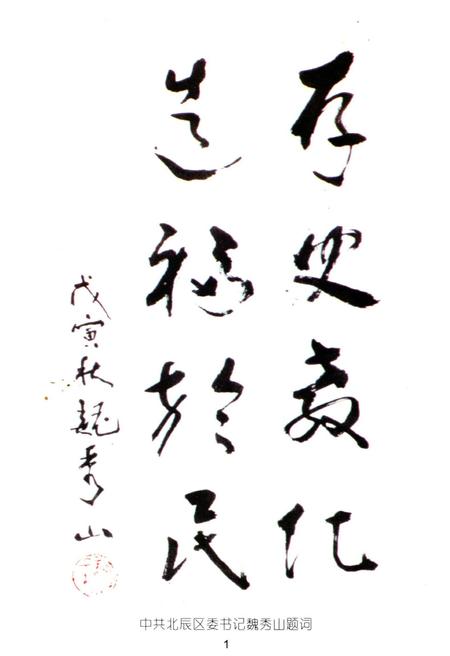 存史教化
造福於民
戊寅秋魏秀山
中共北辰区委书记魏秀山题词
1